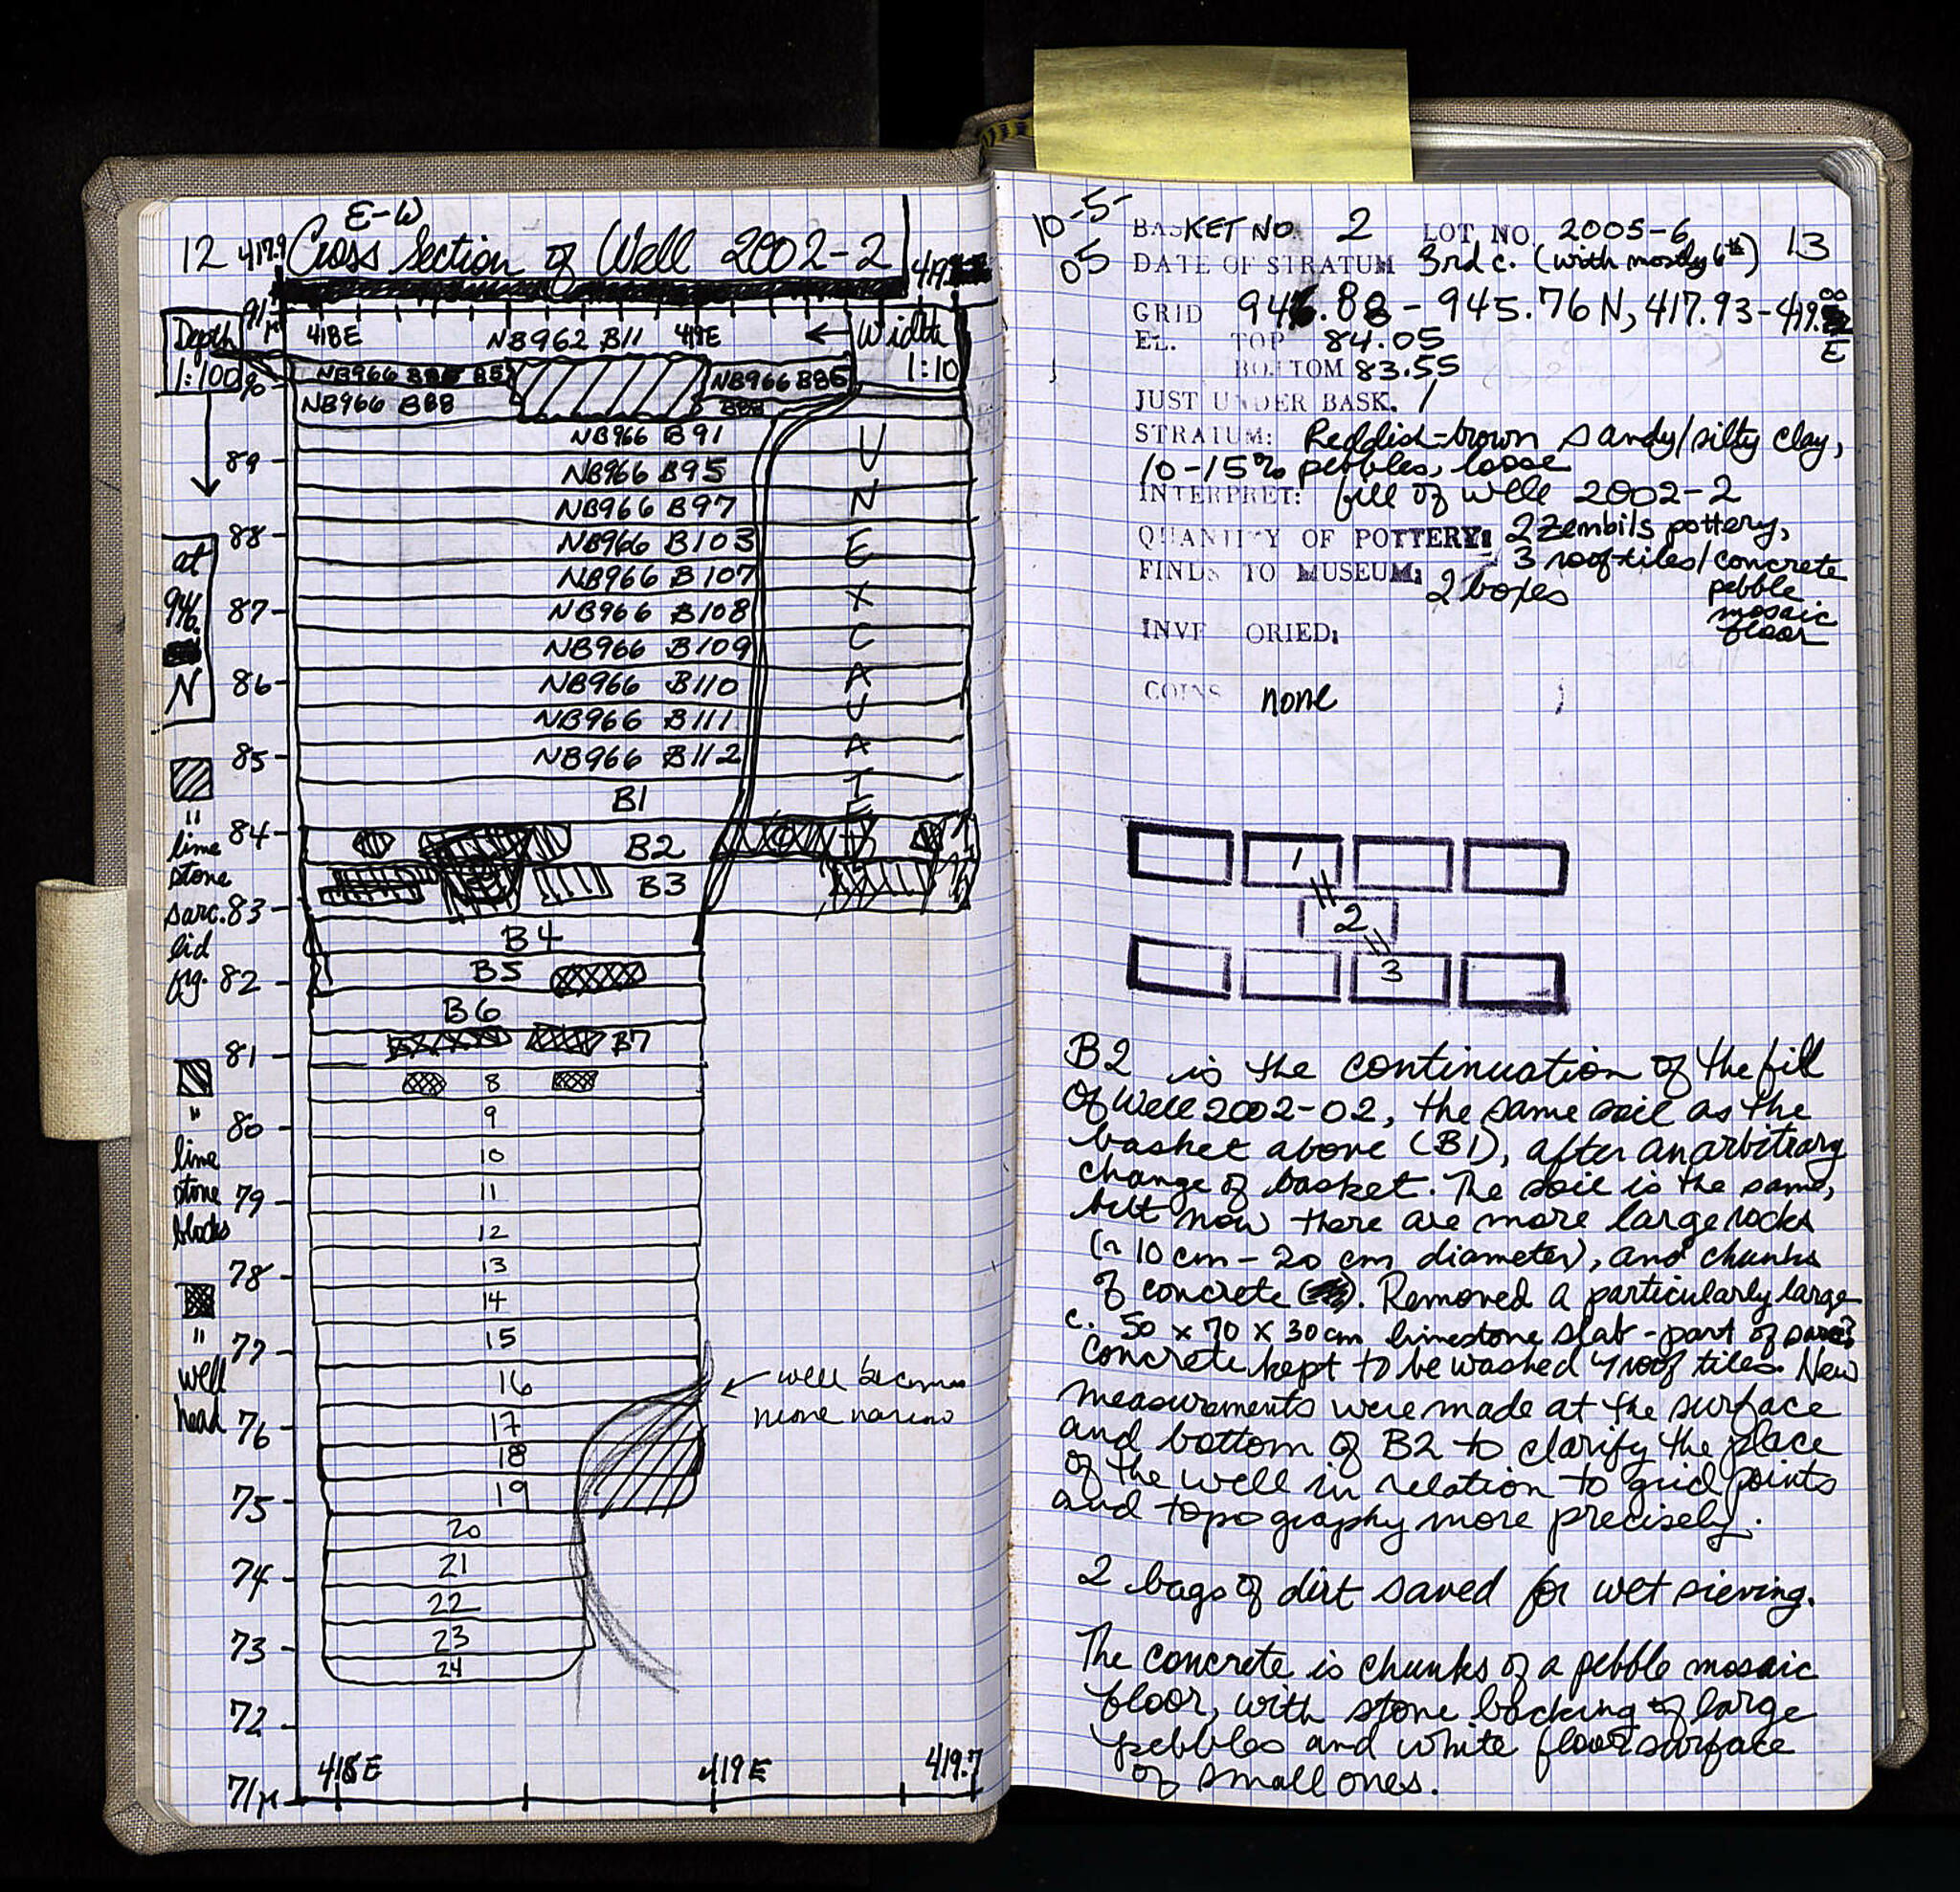 E-W
12 417.9 Cross Section of Well 2002-2
91 m
Depth 1:100
418E NB962 B11 419E ← Width 1:10
90
NB966 B85
NB966 B85
NB966 B88
B88
NB966 B91
89
NB966 B95
NB966 B97
88
NB966 B103
NB966 B107
87
NB966 B108
NB966 B109
86
NB966 B110
NB966 B111
85
NB966 B112
UNEXCAVATED
B1
84
B2
B3
83
B4
82
B5
B6
81
B7
8
80
9
10
79
11
12
78
13
14
77
15
16
76
17
18
75
19
20
74
21
22
73
23
24
72
71 m
← well becomes
more narrow
418E 419E 419.7
at
946.
N
"
lime
stone
sarc.
lid
frg.
"
lime
stone
blocks
"
well
head
10-5-
05
13
BASKET NO. 2 LOT NO 2005-6
DATE OF STRATUM 3rd c. (with mostly 6th)
GRID 946.88 - 945.76 N, 417.93 - 419.00 E
EL. TOP 84.05
BOTTOM 83.55
JUST UNDER BASK. 1
STRATUM: Reddish-brown sandy/silty clay,
10-15% pebbles, loose
INTERPRET: fill of well 2002-2
QUANTITY OF POTTERY: 2 zembils pottery,
3 roof tiles/concrete
pebble
mosaic
floor
FINDS TO MUSEUM: 2 boxes
INVE ORIED:
COINS none
1
2
3
B2 is the continuation of the fill
Of Well 2002-02, the same soil as the
basket above (B1), after an arbitrary
change of basket. The soil is the same,
but now there are more large rocks
(~ 10 cm - 20 cm diameter), and chunks
of concrete. Removed a particularly large
c. 50 x 70 x 30 cm limestone slab - part of sarc?
Concrete kept to be washed & roof tiles. New
measurements were made at the surface
and bottom of B2 to clarify the place
of the well in relation to grid points
and topography more precisely.
2 bags of dirt saved for wet sieving.
The concrete is chunks of a pebble mosaic
floor, with stone backing of large
pebbles and white floor surface
of small ones.